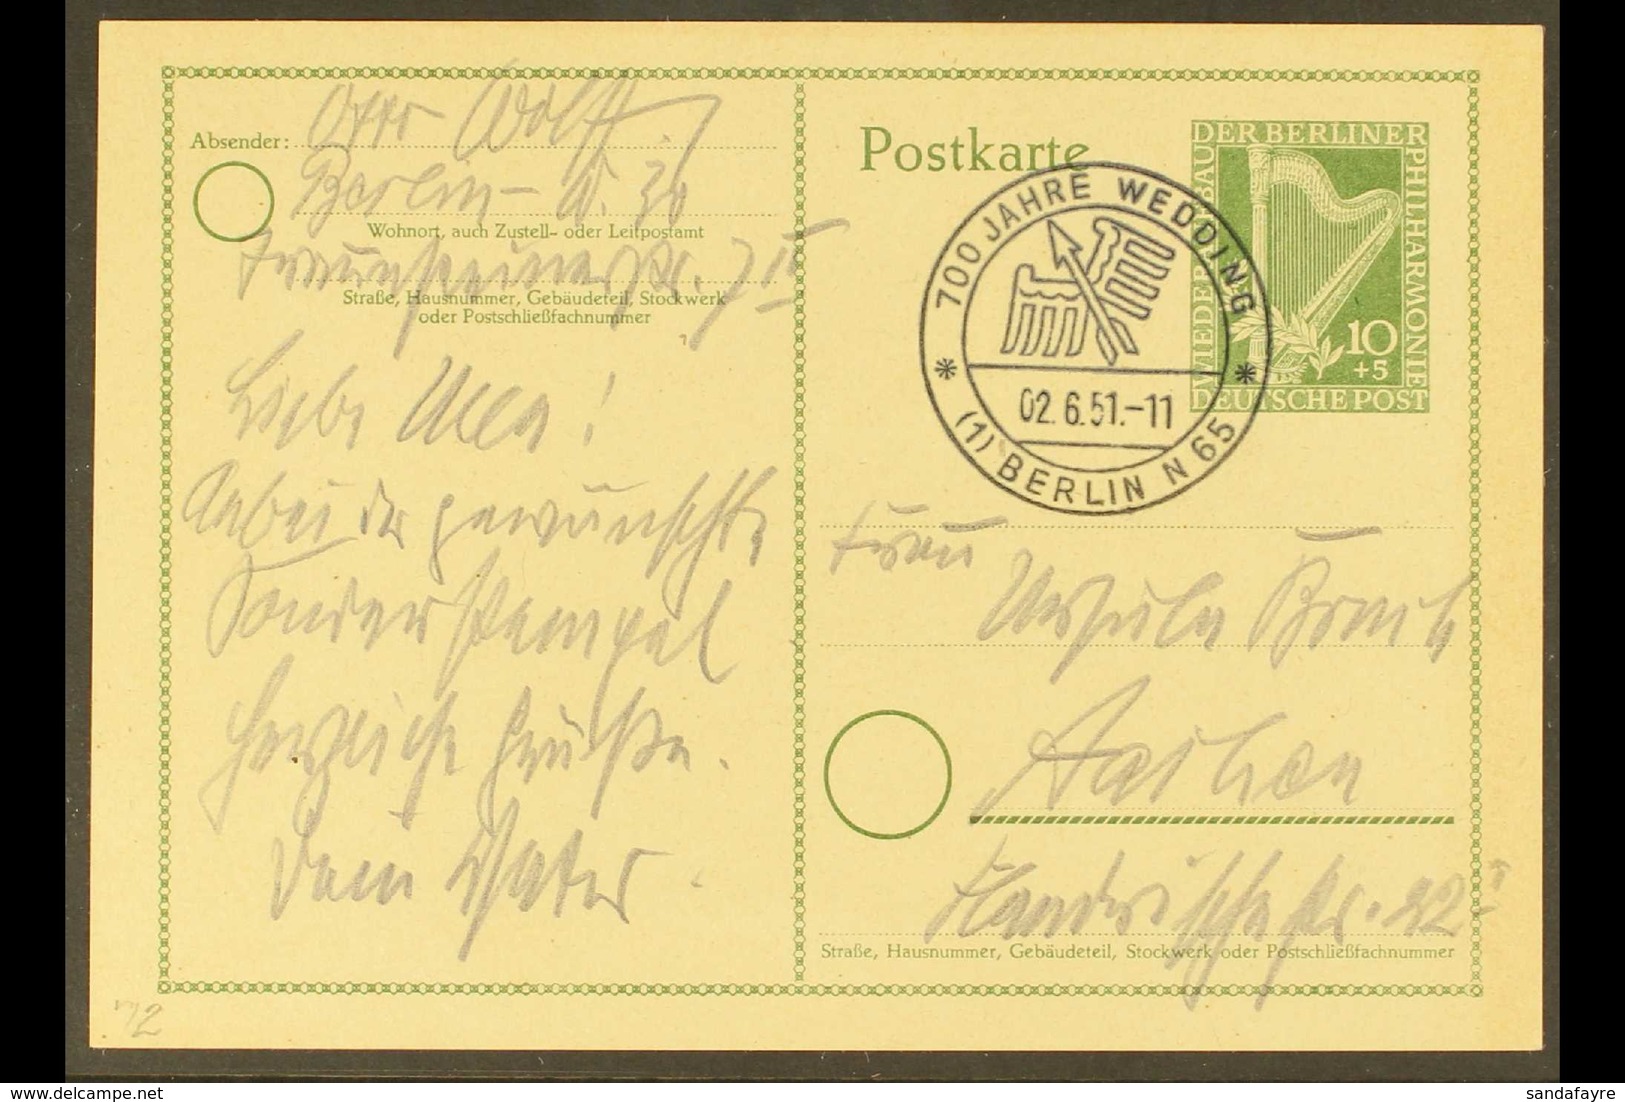 Absender: Otto Wolff
Berlin – W. 30
Wohnort, auch Zustell- oder Leitpostamt
Traunsteinerstr. 7 II
Straße, Hausnummer, Gebäudeteil, Stockwerk
oder Postschließfachnummer
Liebe Ulla!
Anbei der gewünschte
Sonderstempel
Herzliche Grüße.
Dein Vater.
Postkarte
WIEDERAUFBAU DER BERLINER PHILHARMONIE
10
+5
DEUTSCHE POST
700 JAHRE WEDDING
02.6.51.-11
(1) BERLIN N 65
Frau
Ursula
Aachen
22 I
Straße, Hausnummer, Gebäudeteil, Stockwerk oder Postschließfachnummer
Delcampe.net
sandafayre